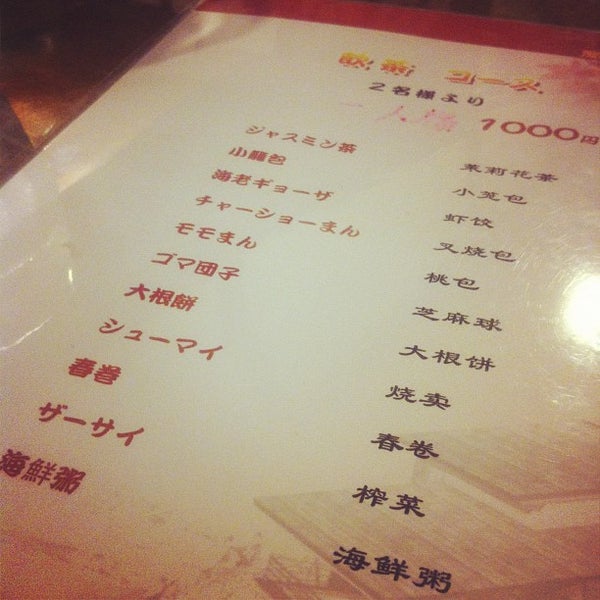 飲茶 コース
2名様より
一人様 1000円
ジャスミン茶 茉莉花茶
小籠包 小笼包
海老ギョーザ 虾饺
チャーショーまん 叉烧包
モモまん 桃包
ゴマ団子 芝麻球
大根餅 大根饼
シューマイ 烧卖
春巻 春卷
ザーサイ 榨菜
海鮮粥 海鲜粥